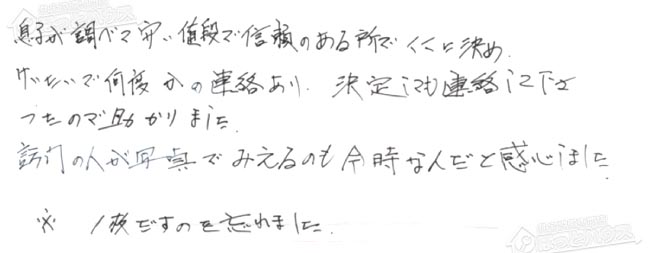 息子が調べて安い値段で信頼のある所でここに決め.
けいたいで何度かの連絡あり. 決定しても連絡して下さ
ったので助かりました.
訪門の人が写真でみえるのも今時なんだと感心しました
※ 1枚だすのを忘れました.